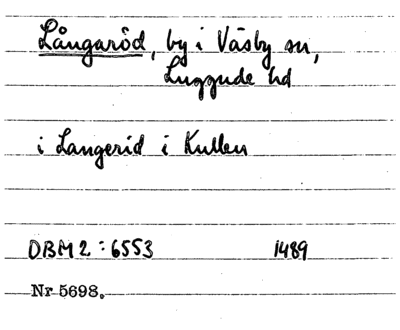 Långaröd, by i Väsby sn,
Luggude hd
i Langerid i Kullen
DBM 2:6553 1489
Nr 5698.